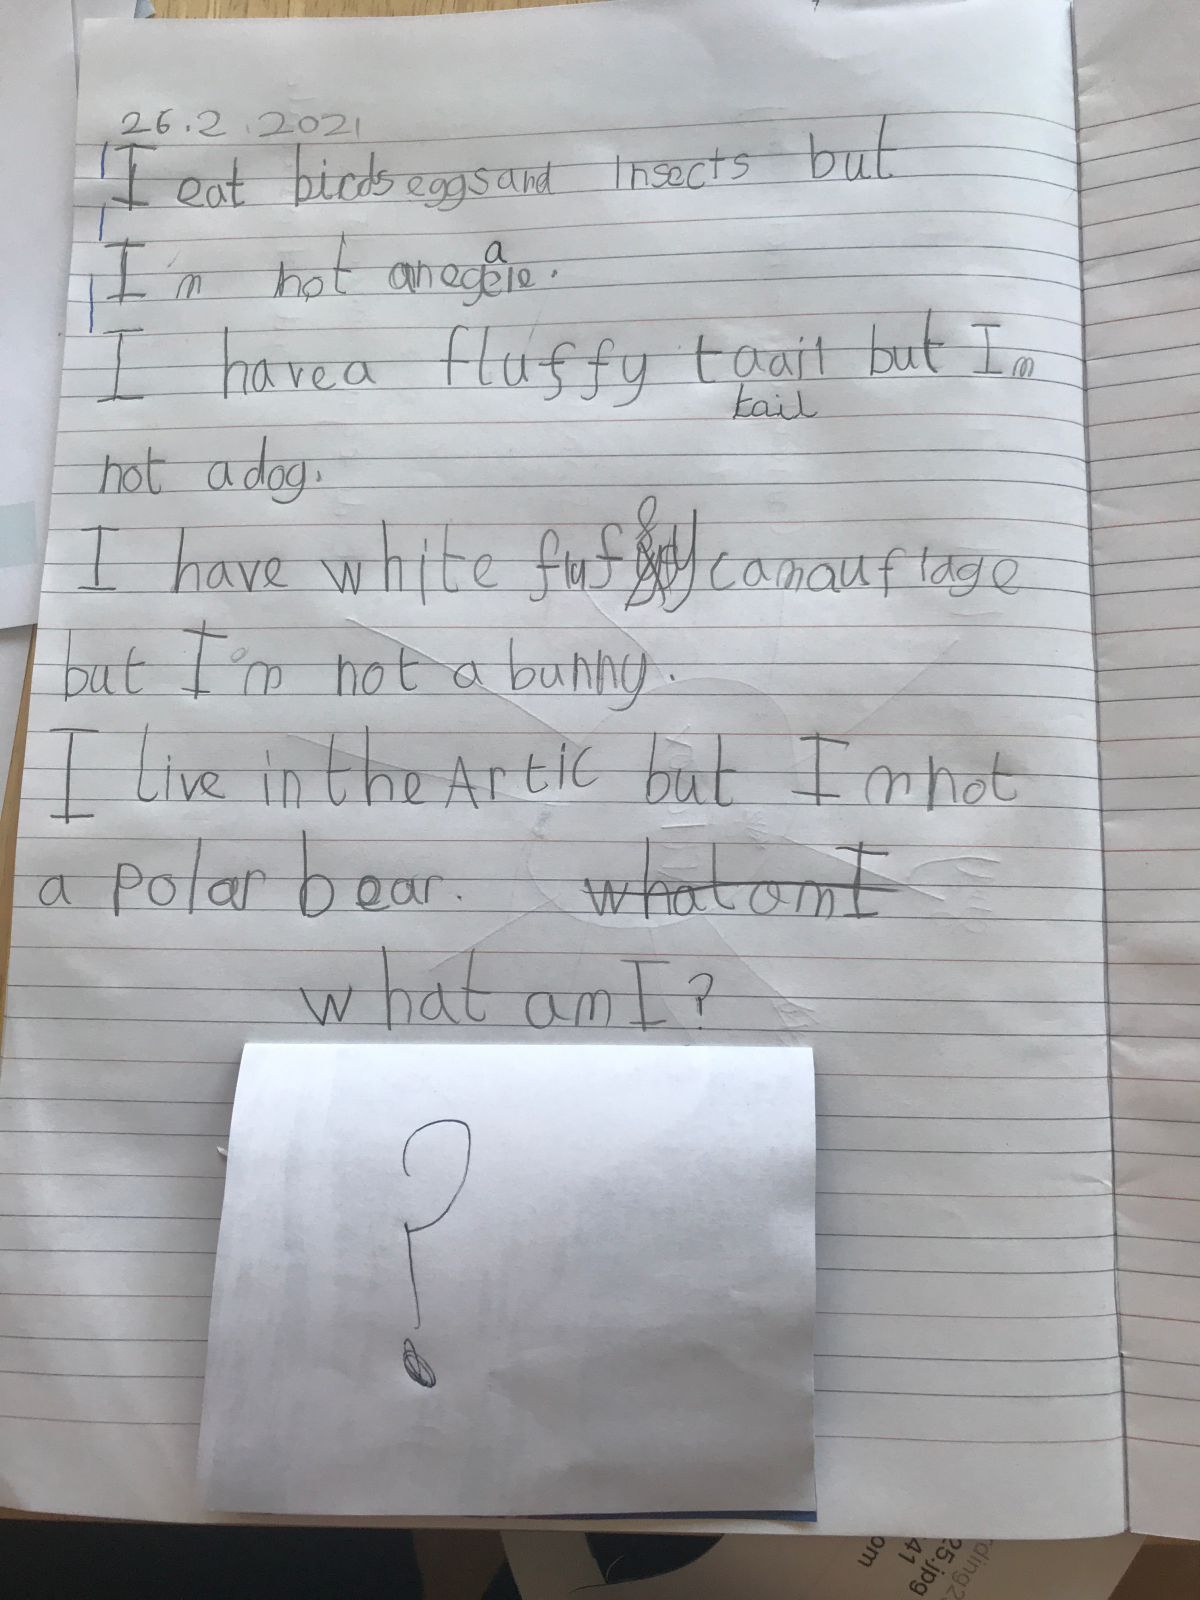 26.2.2021
I eat birds eggs and insects but
I'm not an egale.
I have a fluffy taail but Im
tail
not a dog.
I have white fluffy camauflage
but I'm not a bunny.
I live in the Artic but Im not
a polar bear. what am I
what am I?
?
25.jpg
41
om